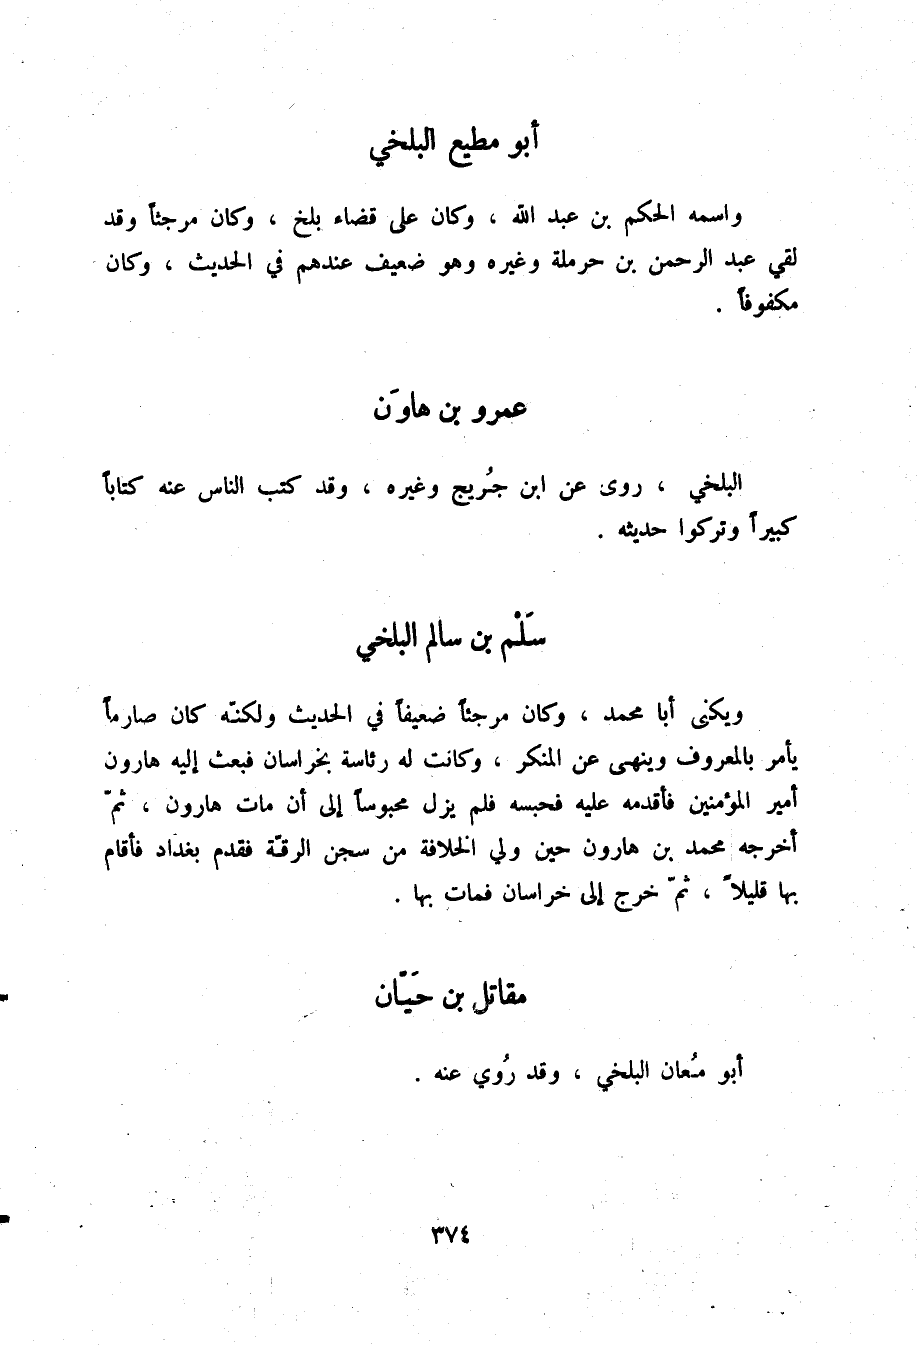 أبو مطيع البلخي
واسمه الحكم بن عبد الله ، وكان على قضاء بلخ ، وكان مرجئاً وقد
لقي عبد الرحمن بن حرملة وغيره وهو ضعيف عندهم في الحديث ، وكان
مكفوفاً .
عمرو بن هاوَن
البلخي ، روى عن ابن جُريج وغيره ، وقد كتب الناس عنه كتاباً
كبيراً وتركوا حديثه .
سَلْم بن سالم البلخي
ويكنى أبا محمد ، وكان مرجئاً ضعيفاً في الحديث ولكنّه كان صارماً
يأمر بالمعروف وينهى عن المنكر ، وكانت له رئاسة بخراسان فبعث إليه هارون
أمير المؤمنين فأقدمه عليه فحبسه فلم يزل محبوساً إلى أن مات هارون ، ثمّ
أخرجه محمد بن هارون حين ولي الخلافة من سجن الرقّة فقدم بغداد فأقام
بها قليلاً ، ثمّ خرج إلى خراسان فمات بها .
مقاتل بن حَيّان
أبو مُعان البلخي ، وقد رُوي عنه .
٣٧٤